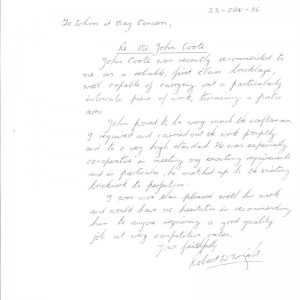 23-JAN-96
To Whom it May Concern,
Re Mr. John Coote
John Coote was recently recommended to
me as a reliable, first class bricklayer,
well capable of carrying out a particularly
intricate piece of work, terracing a patio
area.
John proved to be very much the craftsman
I required and carried out the work promptly
and to a very high standard. He was especially
co-operative in meeting my exacting requirements
and in particular, he matched up to the existing
brickwork to perfection.
I was more than pleased with his work
and would have no hesitation in recommending
him to anyone requiring a good quality
job at very competitive rates.
Yours faithfully
Robert